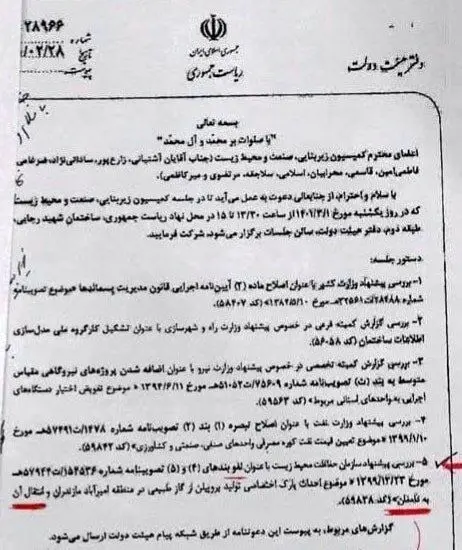 ۲۸۹۶۶
شماره
/۰۲/۲۸
تاریخ
پیوست
جمهوری اسلامی ایران
ریاست جمهوری
دفتر هیئت دولت
بسمه تعالی
"با صلوات بر محمد و آل محمد"
اعضای محترم کمیسیون زیربنایی، صنعت و محیط زیست (جناب آقایان آشتیانی، زارع‌پور، ساداتی‌نژاد، ضرغامی
فاطمی‌امین، قاسمی، محرابیان، اسلامی، سلاجقه، مرتضوی و میرکاظمی).
با سلام و احترام، از جنابعالی دعوت به عمل می‌آید تا در جلسه کمیسیون زیربنایی، صنعت و محیط زیست
که در روز یکشنبه مورخ ۱۴۰۱/۳/۱ از ساعت ۱۳/۳۰ تا ۱۵ در محل نهاد ریاست جمهوری، ساختمان شهید رجایی،
طبقه دوم، دفتر هیئت دولت، سالن جلسات برگزار می‌شود، شرکت فرمایید.
دستور جلسه:
۱- بررسی پیشنهاد وزارت کشور با عنوان اصلاح ماده (۲) آیین‌نامه اجرایی قانون مدیریت پسماندها «موضوع تصویبنامه
شماره ۲۸۴۸۸/ت۳۲۵۶۱هـ مورخ ۱۳۸۴/۵/۱۰» (کد ۵۸۴۰۷)
۲- بررسی گزارش کمیته فرعی در خصوص پیشنهاد وزارت راه و شهرسازی با عنوان تشکیل کارگروه ملی مدل‌سازی
اطلاعات ساختمان (کد ۵۶۰۵۸)
۳- بررسی گزارش کمیته تخصصی در خصوص پیشنهاد وزارت نیرو با عنوان اضافه شدن پروژه‌های نیروگاهی مقیاس
متوسط به بند (ث) تصویب‌نامه شماره ۷۵۶۰۹/ت۵۱۰۵۲هـ مورخ ۱۳۹۴/۶/۱۱ «موضوع تفویض اختیار دستگاه‌های
اجرایی به واحدهای استانی مربوط» (کد ۵۹۵۶۳)
۴- بررسی پیشنهاد وزارت نفت با عنوان اصلاح تبصره (۱) بند (۲) تصویبنامه شماره ۱۴۷۸/ت۵۷۴۹۱هـ مورخ
۱۳۹۹/۱/۱۰ «موضوع تعیین قیمت نفت کوره مصرفی واحدهای صنفی، صنعتی و کشاورزی» (کد ۵۹۸۴۲)
۵- بررسی پیشنهاد سازمان حفاظت محیط زیست با عنوان لغو بندهای (۴) و (۵) تصویبنامه شماره ۱۵۴۵۳۶/ت۵۷۹۴۴هـ
مورخ ۱۳۹۹/۱۲/۲۳ «موضوع احداث پارک اختصاصی تولید پروپیلن از گاز طبیعی در منطقه امیرآباد مازندران و انتقال آن
به دامغان» (کد ۵۹۸۳۸).
گزارش‌های مربوط، به پیوست این دعوتنامه از طریق شبکه پیام هیئت دولت ارسال می‌شود.